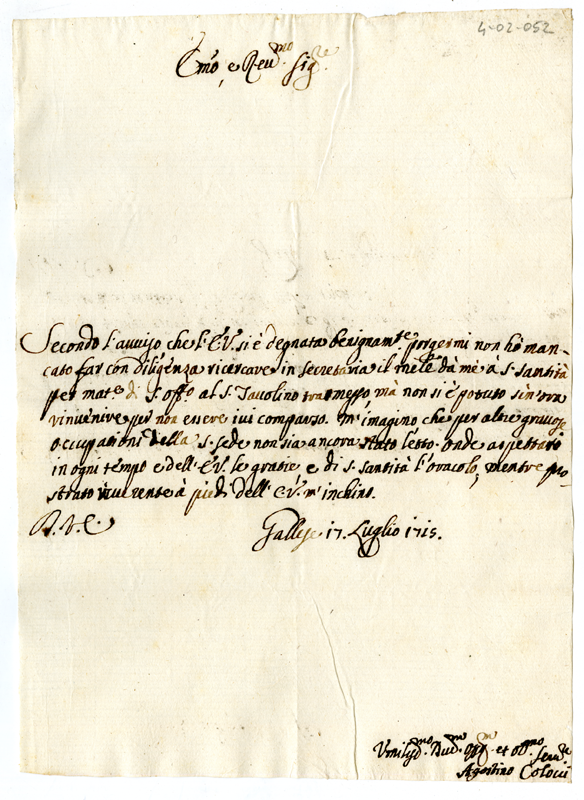 4-02-052
Emo, e Reu.mo Sig.re
Secondo l'auuiso che l'E.V. si è degnata benignam.te porgermi non hò man-
cato far con diligenza ricercare in secretaria il mele dà mè à S. Santità
per mat.e di S. Off.o al S. Tauolino trasmesso mà non si è potuto sin'ora
rinuenire per non essere iui comparso. M'imagino che per altre grauose
occupationi della S. Sede non sia ancora stato letto. onde aspettarò
in ogni tempo e dell'E.V. le gratie e di S. Santità l'oracolo, mentre pro-
strato riuerente à piedi dell'E.V. m'inchino.
Gallese 17. Luglio 1715.
Vmiliss.mo Diu.mo et Obb.mo Seru.re
Agostino Colocci